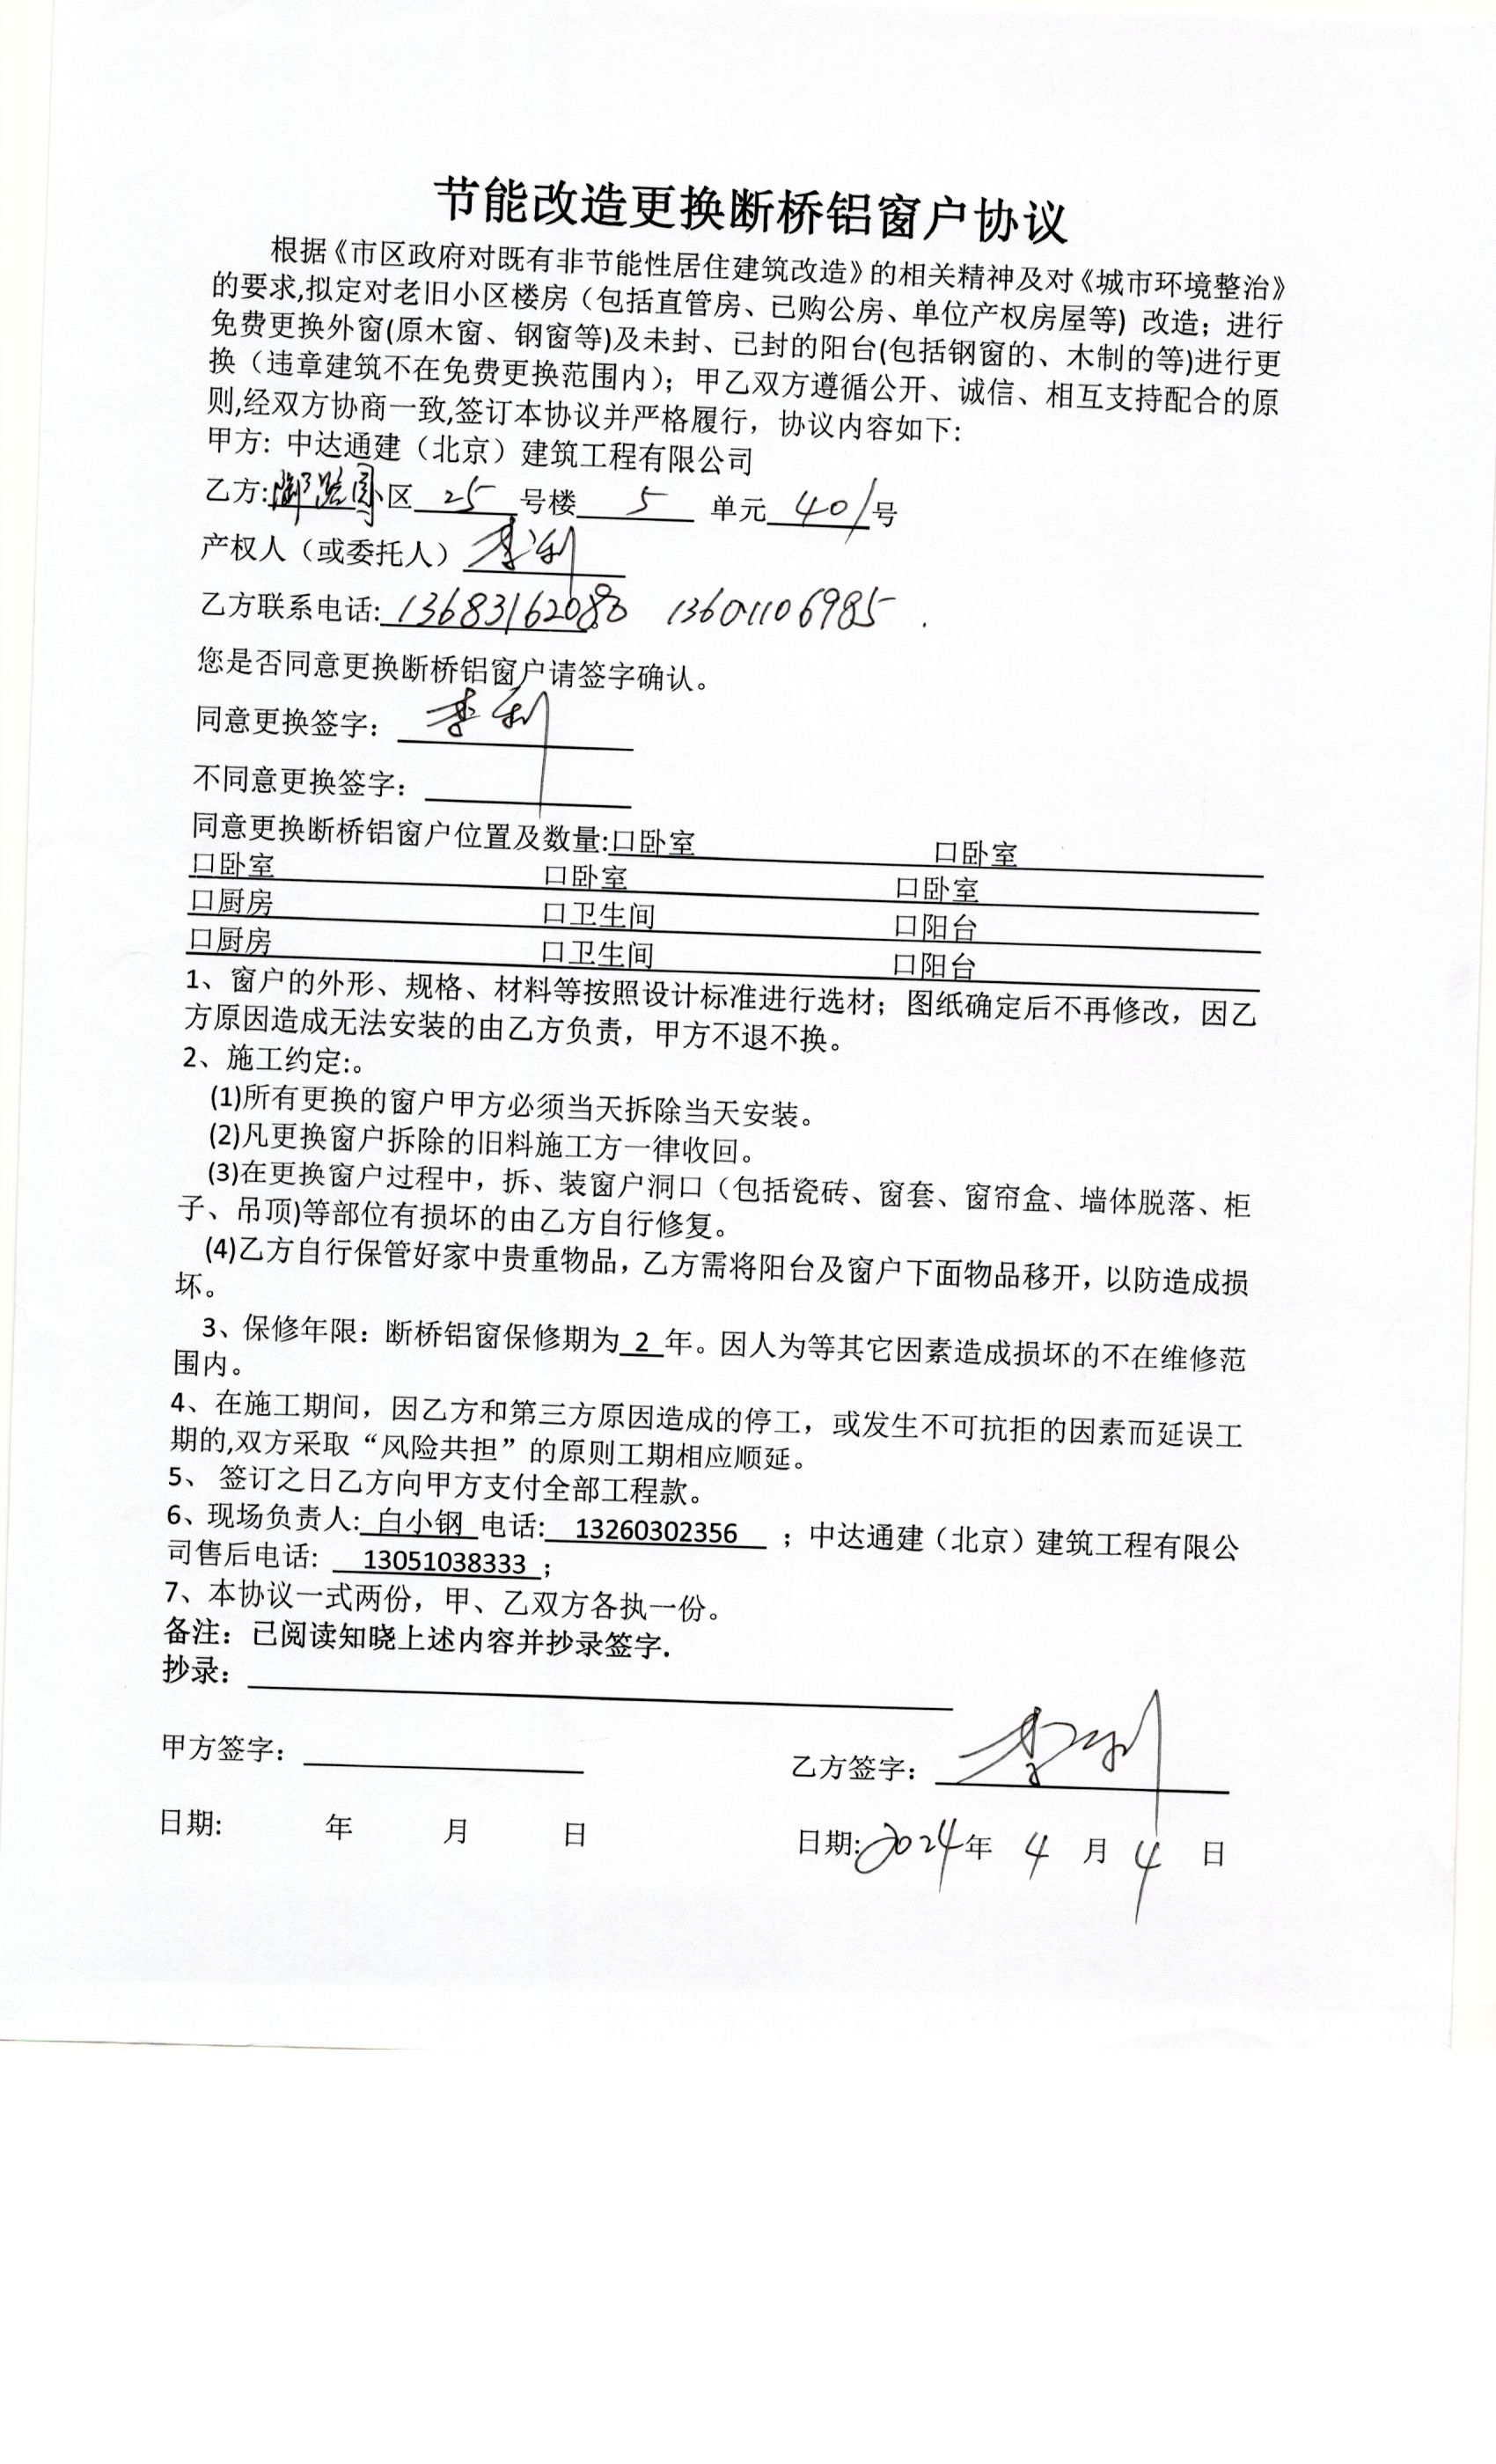 节能改造更换断桥铝窗户协议
根据《市区政府对既有非节能性居住建筑改造》的相关精神及对《城市环境整治》
的要求,拟定对老旧小区楼房（包括直管房、已购公房、单位产权房屋等）改造；进行
免费更换外窗(原木窗、钢窗等)及未封、已封的阳台(包括钢窗的、木制的等)进行更
换（违章建筑不在免费更换范围内）；甲乙双方遵循公开、诚信、相互支持配合的原
则,经双方协商一致,签订本协议并严格履行，协议内容如下:
甲方: 中达通建（北京）建筑工程有限公司
乙方: 小区 25 号楼 5 单元 401 号
产权人（或委托人） 李利
乙方联系电话: 13683162080 13601106985.
您是否同意更换断桥铝窗户请签字确认。
同意更换签字： 李利
不同意更换签字：
同意更换断桥铝窗户位置及数量:口卧室 口卧室
口卧室 口卧室 口卧室
口厨房 口卫生间 口阳台
口厨房 口卫生间 口阳台
1、窗户的外形、规格、材料等按照设计标准进行选材；图纸确定后不再修改，因乙
方原因造成无法安装的由乙方负责，甲方不退不换。
2、施工约定:。
(1)所有更换的窗户甲方必须当天拆除当天安装。
(2)凡更换窗户拆除的旧料施工方一律收回。
(3)在更换窗户过程中，拆、装窗户洞口（包括瓷砖、窗套、窗帘盒、墙体脱落、柜
子、吊顶)等部位有损坏的由乙方自行修复。
(4)乙方自行保管好家中贵重物品，乙方需将阳台及窗户下面物品移开，以防造成损
坏。
3、保修年限：断桥铝窗保修期为 2 年。因人为等其它因素造成损坏的不在维修范
围内。
4、在施工期间，因乙方和第三方原因造成的停工，或发生不可抗拒的因素而延误工
期的,双方采取“风险共担”的原则工期相应顺延。
5、 签订之日乙方向甲方支付全部工程款。
6、现场负责人: 白小钢 电话: 13260302356 ；中达通建（北京）建筑工程有限公
司售后电话: 13051038333 ；
7、本协议一式两份，甲、乙双方各执一份。
备注：已阅读知晓上述内容并抄录签字.
抄录：
甲方签字： 乙方签字： 李利
日期: 年 月 日 日期: 2024年 4 月 4 日